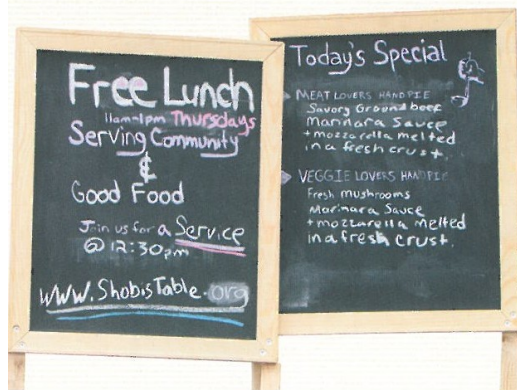 Free Lunch
11am-1pm Thursdays
Serving Community
&
Good Food
Join us for a Service
@ 12:30pm
www.ShobisTable.org
Today's Special
MEAT LOVERS HANDPIE
Savory Ground beef
Marinara Sauce
+ mozzarella melted
in a fresh crust.
VEGGIE LOVERS HANDPIE
Fresh mushrooms
Marinara Sauce
+ mozzarella melted
in a fresh crust.